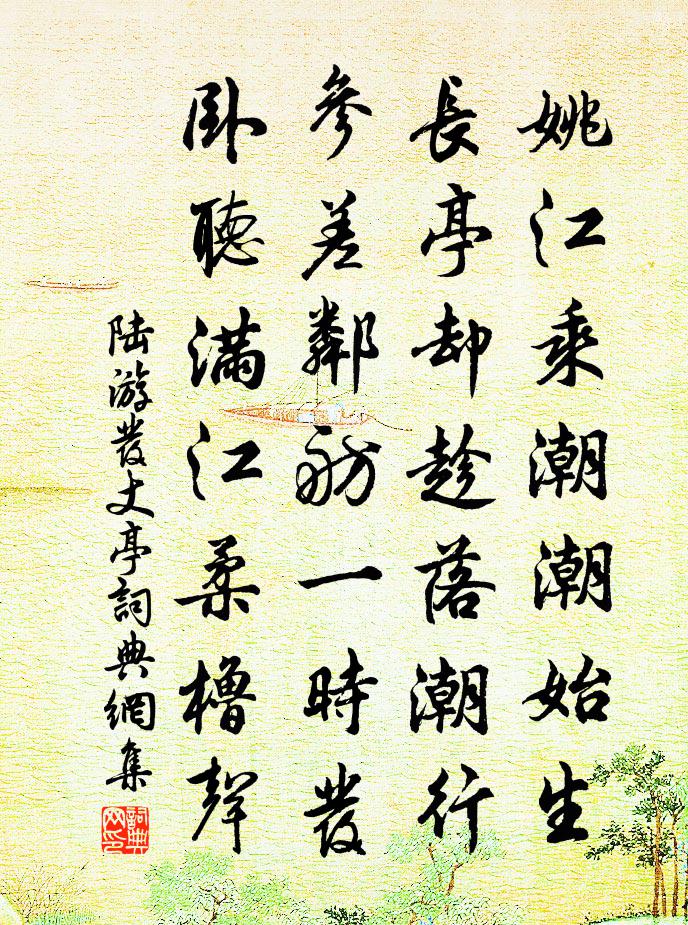 姚江乘潮潮始生
長亭却趁落潮行
參差鄰舫一時發
卧聽滿江柔櫓聲
陆游發丈亭詞典網集
詞典
网印